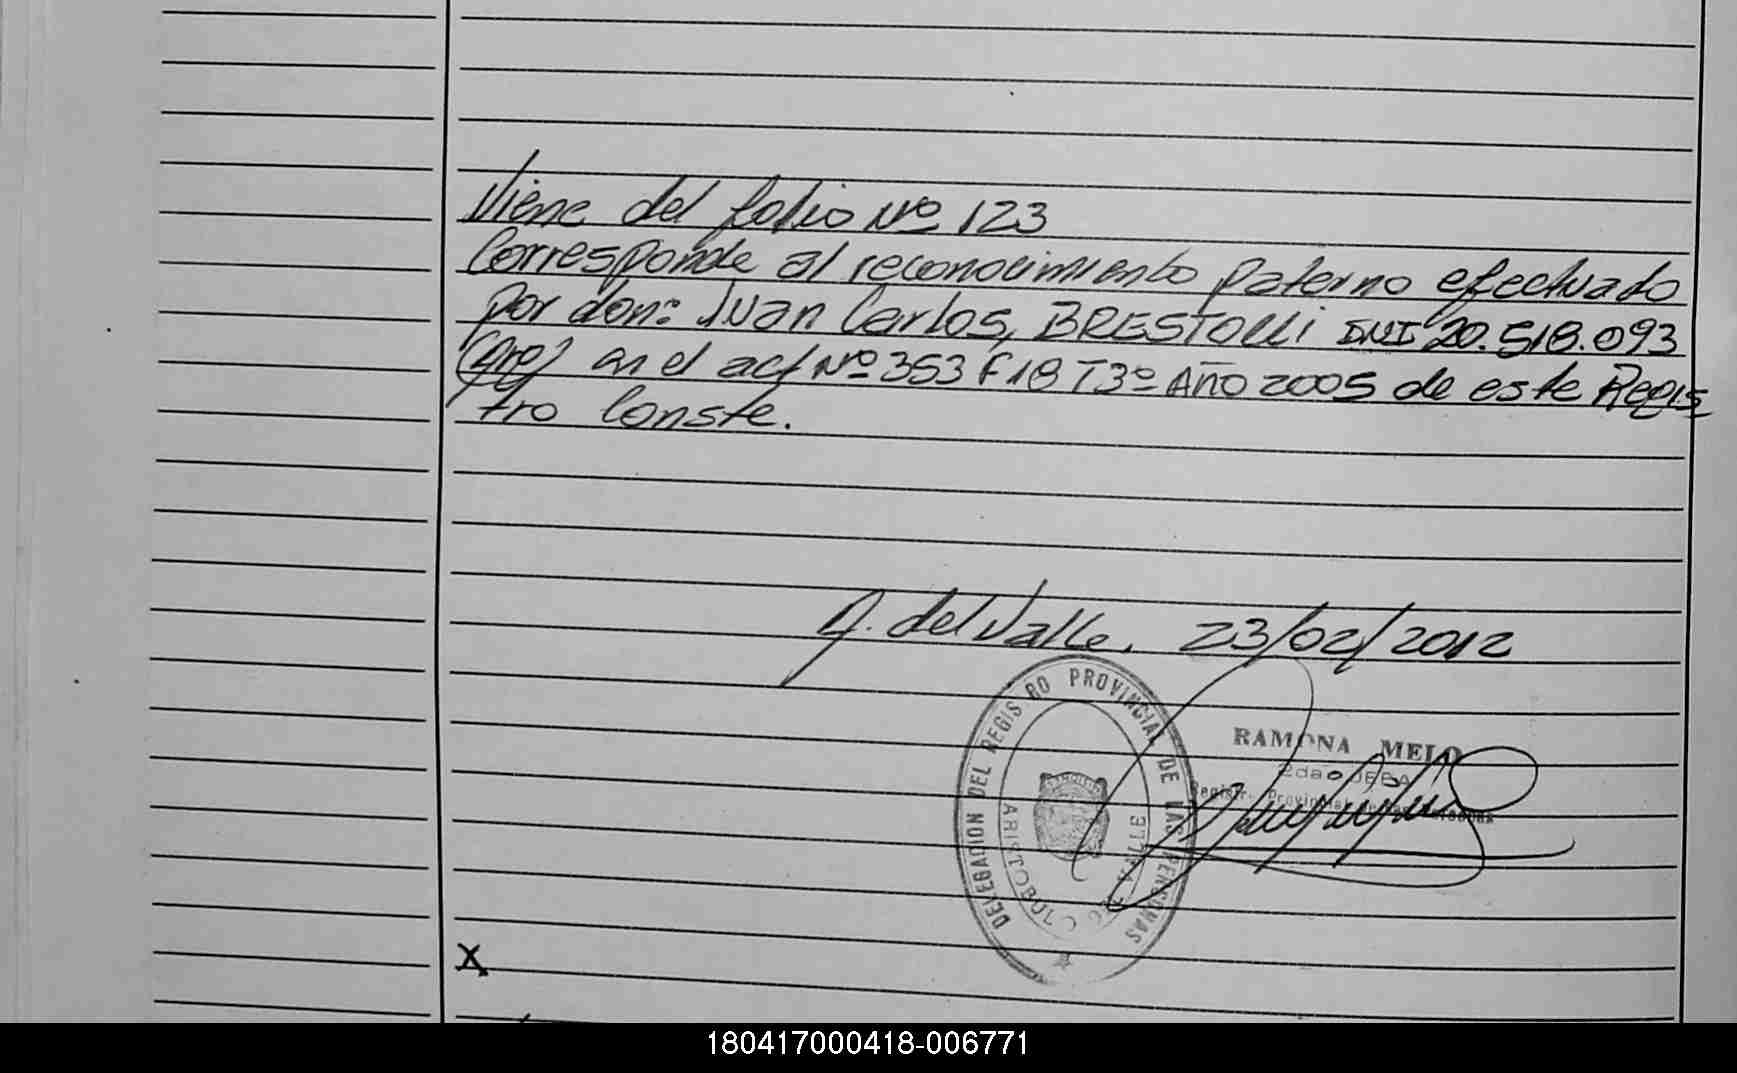 Viene del folio Nº 123
Corresponde al reconocimiento paterno efectuado
por don: Juan Carlos, BRESTOLLI DNI 20.518.093
(Arg) en el act Nº 353 F 18 T 3º Año 2005 de este Regis
tro Conste.
A. del Valle. 23/02/2012
DELEGACION DEL REGISTRO PROVINCIAL DE LAS PERSONAS
ARISTOBULO DEL VALLE
RAMONA MELO
2da JEFA
Registro Provincial de las Personas
X
180417000418-006771